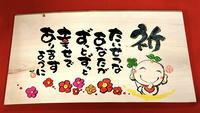 祈
たいせつな
あなたが
ずっとずっと
幸せで
ありますように